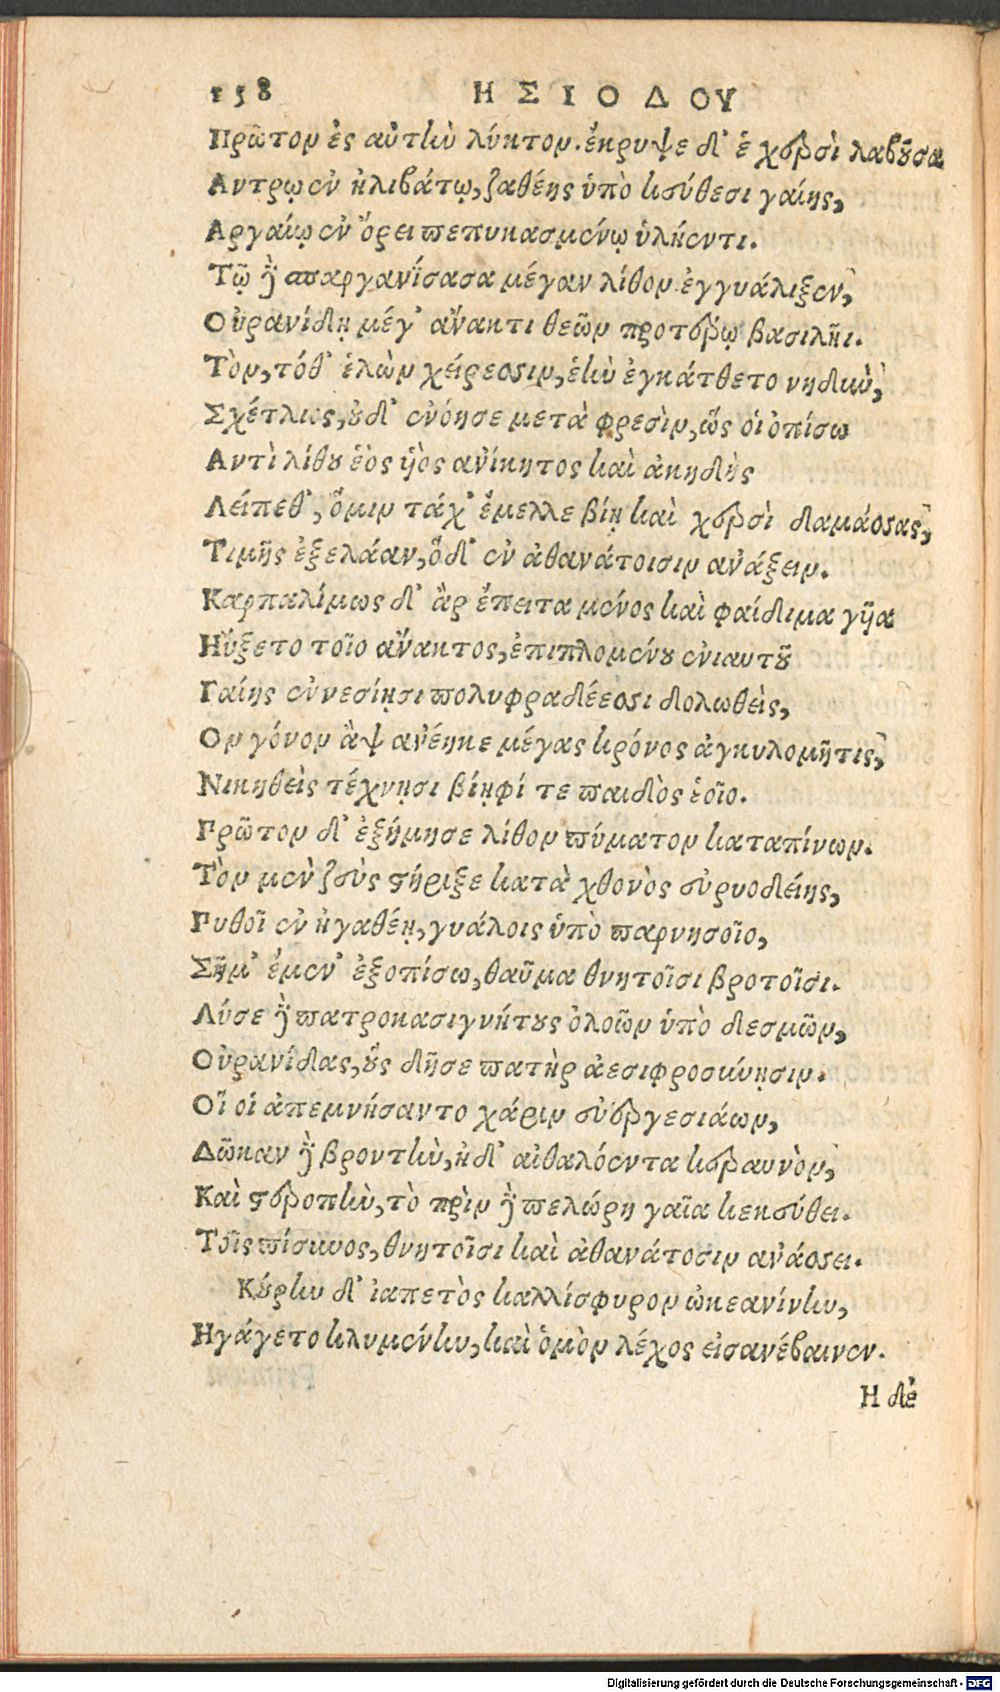 158 ΗΣΙΟΔΟΥ
Πρῶτον ἐς αὐτὴν λύκτον. ἔκρυψε δ' ἑ χερσὶ λαβοῦσα
Αντρῳ ἐν ἠλιβάτῳ, ζαθέης ὑπὸ κεύθεσι γαίης,
Αργαίῳ ἐν ὄρει πεπυκασμένῳ ὑλήεντι.
Τῷ δὲ σπαργανίσασα μέγαν λίθον ἐγγυάλιξεν,
Οὐρανίδῃ μέγ' ἄνακτι θεῶν προτέρῳ βασιλῆι.
Τὸν, τόθ' ἑλὼν χείρεσσιν, ἑὴν ἐγκάτθετο νηδὺν,
Σχέτλιος, οὐδ' ἐνόησε μετὰ φρεσὶν, ὥς οἱ ὀπίσω
Αντὶ λίθου ἑὸς ὑὸς ἀνίκητος καὶ ἀκηδὴς
Λείπεθ', ὅμιν τάχ' ἔμελλε βίῃ καὶ χερσὶ δαμάσσας,
Τιμῆς ἐξελάαν, ὅδ' ἐν ἀθανάτοισιν ἀνάξειν.
Καρπαλίμως δ' ἂρ ἔπειτα μένος καὶ φαίδιμα γυῖα
Ηὔξετο τοῖο ἄνακτος, ἐπιπλομένου ἐνιαυτοῦ
Γαίης ἐννεσίῃσι πολυφραδέεσσι δολωθεὶς,
Ον γόνον ἂψ ἀνέηκε μέγας κρόνος ἀγκυλομῆτις,
Νικηθεὶς τέχνῃσι βίῃφί τε παιδὸς ἑοῖο.
Πρῶτον δ' ἐξήμησε λίθον πύματον καταπίνων.
Τὸν μὲν ζεὺς στήριξε κατὰ χθονὸς εὐρυοδείης,
Πυθοῖ ἐν ἠγαθέῃ, γυάλοις ὑπὸ παρνησοῖο,
Σῆμ' ἔμεν' ἐξοπίσω, θαῦμα θνητοῖσι βροτοῖσι.
Λύσε δὲ πατροκασιγνήτους ὀλοῶν ὑπὸ δεσμῶν,
Οὐρανίδας, οὓς δῆσε πατὴρ ἀεσιφροσύνῃσιν.
Οἵ οἱ ἀπεμνήσαντο χάριν εὐεργεσιάων,
Δῶκαν δὲ βροντὴν, ἠδ' αἰθαλόεντα κεραυνὸν,
Καὶ στεροπὴν, τὸ πρὶν δὲ πελώρη γαῖα κεκεύθει.
Τοῖς πίσυνος, θνητοῖσι καὶ ἀθανάτοσιν ἀνάσσει.
Κούρην δ' ἰαπετὸς καλλίσφυρον ὠκεανίνην,
Ηγάγετο κλυμένην, καὶ ὁμὸν λέχος εἰσανέβαινεν.
Η δὲ
Digitalisierung gefördert durch die Deutsche Forschungsgemeinschaft - DFG